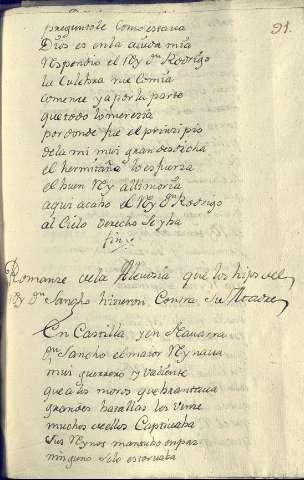 91.
preguntole como estava
Dios es en la aiuda mia
Respondio el Rey Dn Rodrigo
la Culebra me Comia
Comeme ya por la parte
que todo lo meresia
por donde fue el prinsipio
de la mi mui gran desdicha
el hermitaño lo esfuerza
el buen Rey alli moria
aqui acabo el Rey Dn Rodrigo
al Cielo derecho se yba
fin
Romanze de la Alevosia que los hijos del
Rey Dn Sancho hizieron Contra su Madre
En Castilla, y en Navarra
Dn Sancho el maior Reynava
mui guerrero y valiente
que a los moros quebrantava
grandes batallas los vense
muchos de ellos Captivaba
sus Reynos mantubo en paz
ninguno se lo estorvaba